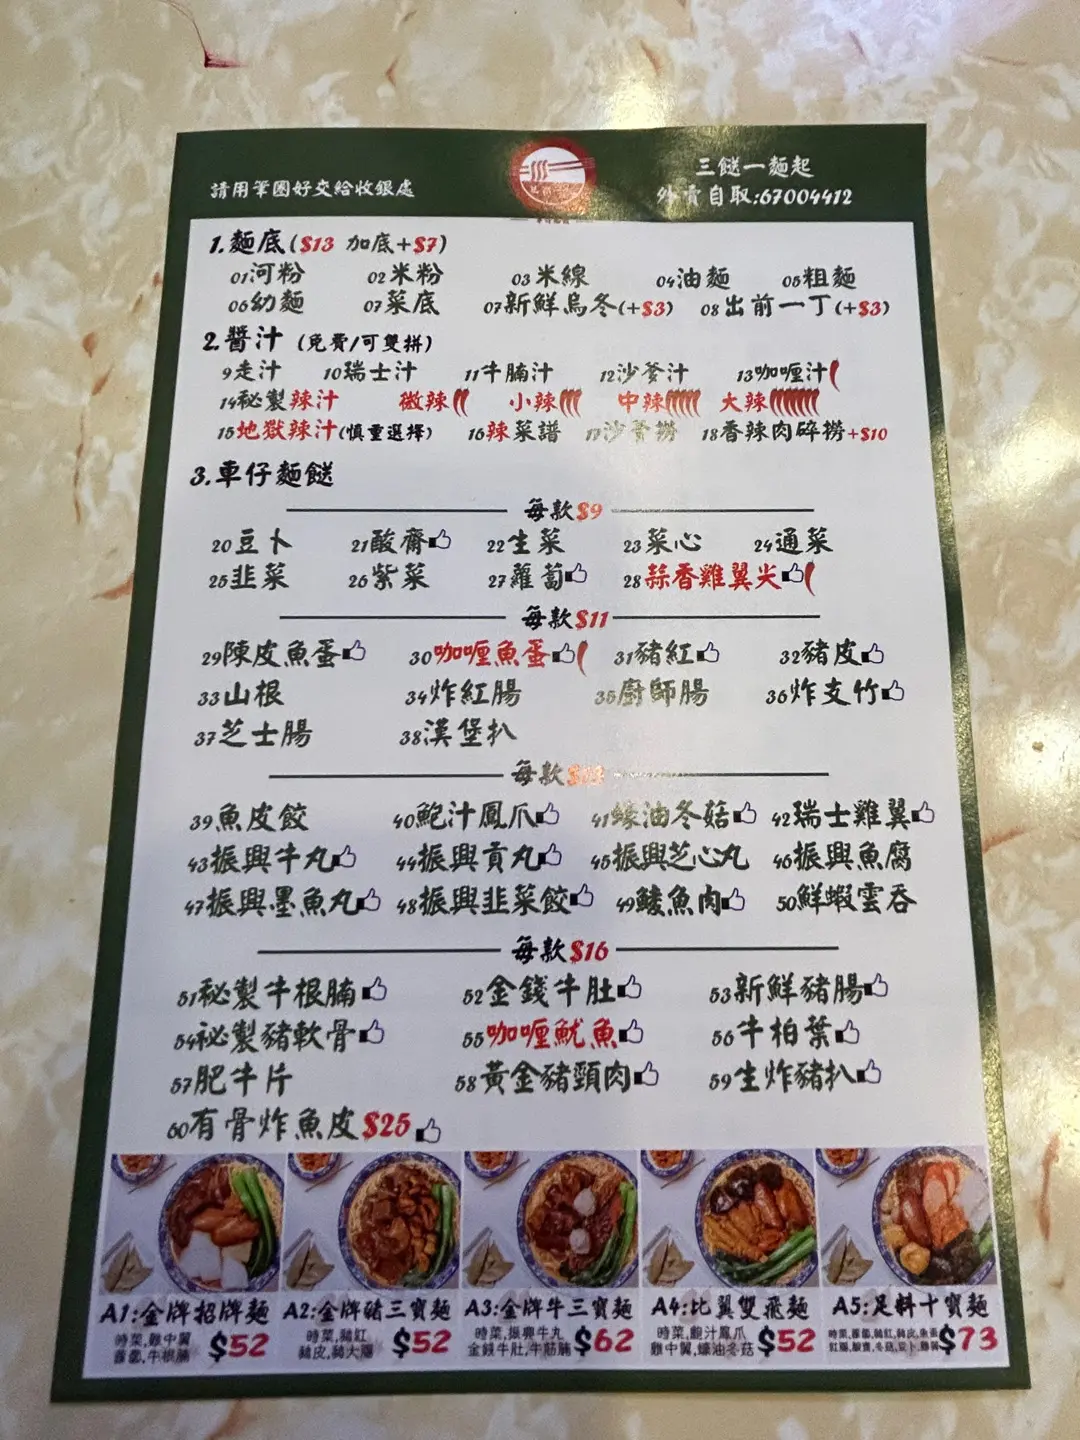 請用筆圈好交給收銀處
三餸一麵起
外賣自取:67004412
1.麵底($13 加底+$7)
01河粉 02米粉 03米線 04油麵 05粗麵
06幼麵 07菜底 07新鮮烏冬(+$3) 08出前一丁(+$3)
2.醬汁 (免費/可雙拼)
9走汁 10瑞士汁 11牛腩汁 12沙爹汁 13咖喱汁
14秘製辣汁 微辣 小辣 中辣 大辣
15地獄辣汁(慎重選擇) 16辣菜譜 17沙爹撈 18香辣肉碎撈+$10
3.車仔麵餸
每款$9
20豆卜 21酸齋 22生菜 23菜心 24通菜
25韭菜 26紫菜 27蘿蔔 28蒜香雞翼尖
每款$11
29陳皮魚蛋 30咖喱魚蛋 31豬紅 32豬皮
33山根 34炸紅腸 35廚師腸 36炸支竹
37芝士腸 38漢堡扒
每款
39魚皮餃 40鮑汁鳳爪 41蠔油冬菇 42瑞士雞翼
43振興牛丸 44振興貢丸 45振興芝心丸 46振興魚腐
47振興墨魚丸 48振興韭菜餃 49鯪魚肉 50鮮蝦雲吞
每款$16
51秘製牛根腩 52金錢牛肚 53新鮮豬腸
54祕製豬軟骨 55咖喱魷魚 56牛柏葉
57肥牛片 58黃金豬頸肉 59生炸豬扒
60有骨炸魚皮$25
A1:金牌招牌麵 A2:金牌豬三寶麵 A3:金牌牛三寶麵 A4:比翼雙飛麵 A5:足料十寶麵
時菜,雞中翼 時菜,豬紅 時菜,振興牛丸 時菜,鮑汁鳳爪 時菜,蘿蔔,豬紅,豬皮,魚蛋
蘿蔔,牛根腩 $52 豬皮,豬大腸 $52 金錢牛肚,牛筋腩 $62 雞中翼,蠔油冬菇 $52 紅腸,酸齋,冬菇,豆卜,雞翼 $73